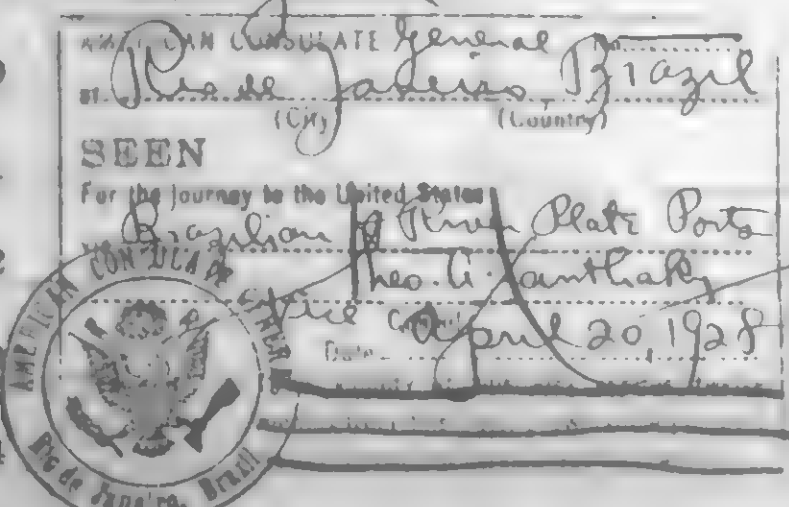 AMERICAN CONSULATE General
at Rio de Janeiro Brazil
(City) (Country)
SEEN
For the journey to the United States
via Brazilian & River Plate Ports
Theo. A. Xanthaky
Vice Consul
Date April 20, 1928
AMERICAN CONSULATE GENERAL
Rio de Janeiro, Brazil